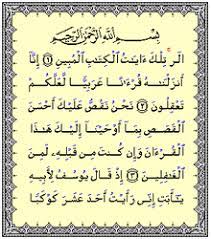 بِسْمِ ٱللَّهِ ٱلرَّحْمَٰنِ ٱلرَّحِيمِ
الٓر تِلْكَ ءَايَٰتُ ٱلْكِتَٰبِ ٱلْمُبِينِ ١ إِنَّآ
أَنزَلْنَٰهُ قُرْءَٰنًا عَرَبِيًّا لَّعَلَّكُمْ
تَعْقِلُونَ ٢ نَحْنُ نَقُصُّ عَلَيْكَ أَحْسَنَ
ٱلْقَصَصِ بِمَآ أَوْحَيْنَآ إِلَيْكَ هَٰذَا
ٱلْقُرْءَانَ وَإِن كُنتَ مِن قَبْلِهِۦ لَمِنَ
ٱلْغَٰفِلِينَ ٣ إِذْ قَالَ يُوسُفُ لِأَبِيهِ
يَٰٓأَبَتِ إِنِّى رَأَيْتُ أَحَدَ عَشَرَ كَوْكَبًا